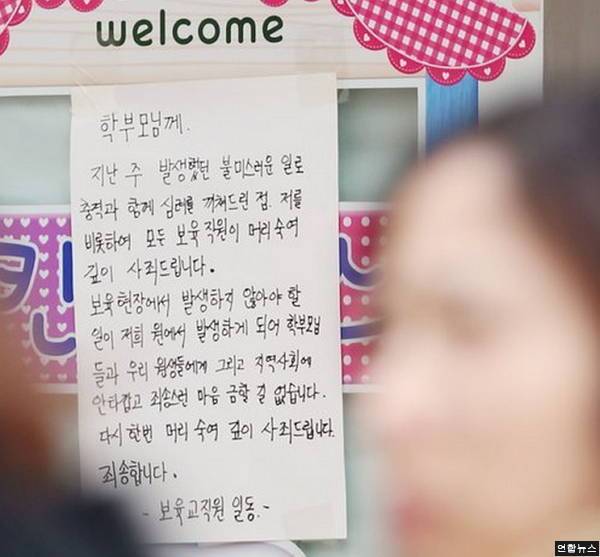 welcome
학부모님께.
지난 주 발생했던 불미스러운 일로
충격과 함께 심려를 끼쳐드린 점. 저를
비롯하여 모든 보육직원이 머리숙여
깊이 사죄드립니다.
보육현장에서 발생하지 않아야 할
일이 저희 원에서 발생하게 되어 학부모님
들과 우리 원생들에게 그리고 지역사회에
안타깝고 죄송스런 마음 금할 길 없습니다.
다시한번 머리숙여 깊이 사죄드립니다.
죄송합니다.
- 보육교직원 일동.-
연합뉴스